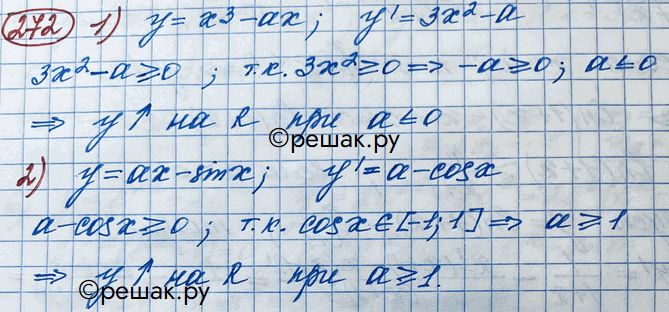 272 1) y = x³ - ax ; y' = 3x² - a
3x² - a ≥ 0 ; т.к. 3x² ≥ 0 => -a ≥ 0 ; a ≤ 0
=> y ↑ на R при a ≤ 0
©решак.ру
2) y = ax - sinx ; y' = a - cosx
a - cosx ≥ 0 ; т.к. cosx ∈ [-1; 1] => a ≥ 1
=> y ↑ на R при a ≥ 1.
©решак.ру